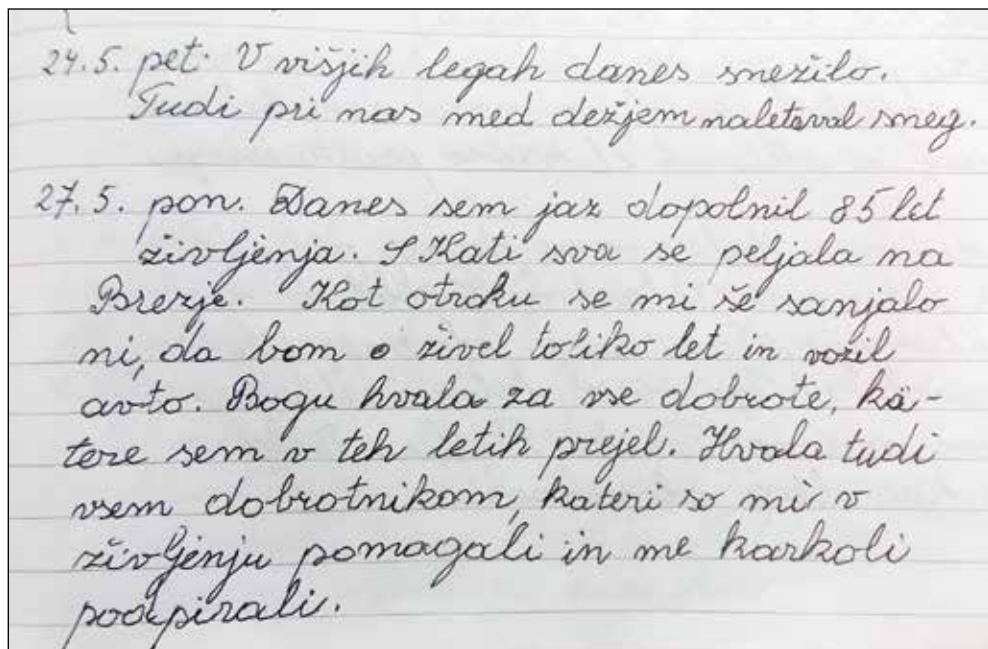 24.5. pet. V višjih legah danes snežilo.
Tudi pri nas med dežjem naletaval sneg.
27.5. pon. Danes sem jaz dopolnil 85 let
življenja. S Kati sva se peljala na
Brezje. Kot otroku se mi še sanjalo
ni, da bom živel toliko let in vozil
avto. Bogu hvala za vse dobrote, ka-
tere sem v teh letih prejel. Hvala tudi
vsem dobrotnikom, kateri so mi v
življenju pomagali in me karkoli
podpirali.